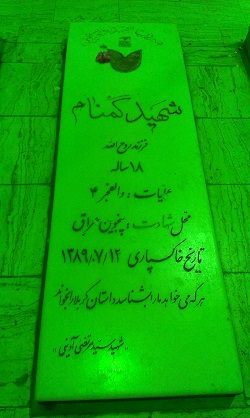 شهید گمنام
فرزند روح الله
۱۸ ساله
عملیات : والفجر ۴
محل شهادت : پنجوین عراق
تاریخ خاکسپاری ۱۳۸۹/۷/۱۲
هر که می خواهد ما را بشناسد داستان کربلا را بخواند
«شهید سید مرتضی آوینی»